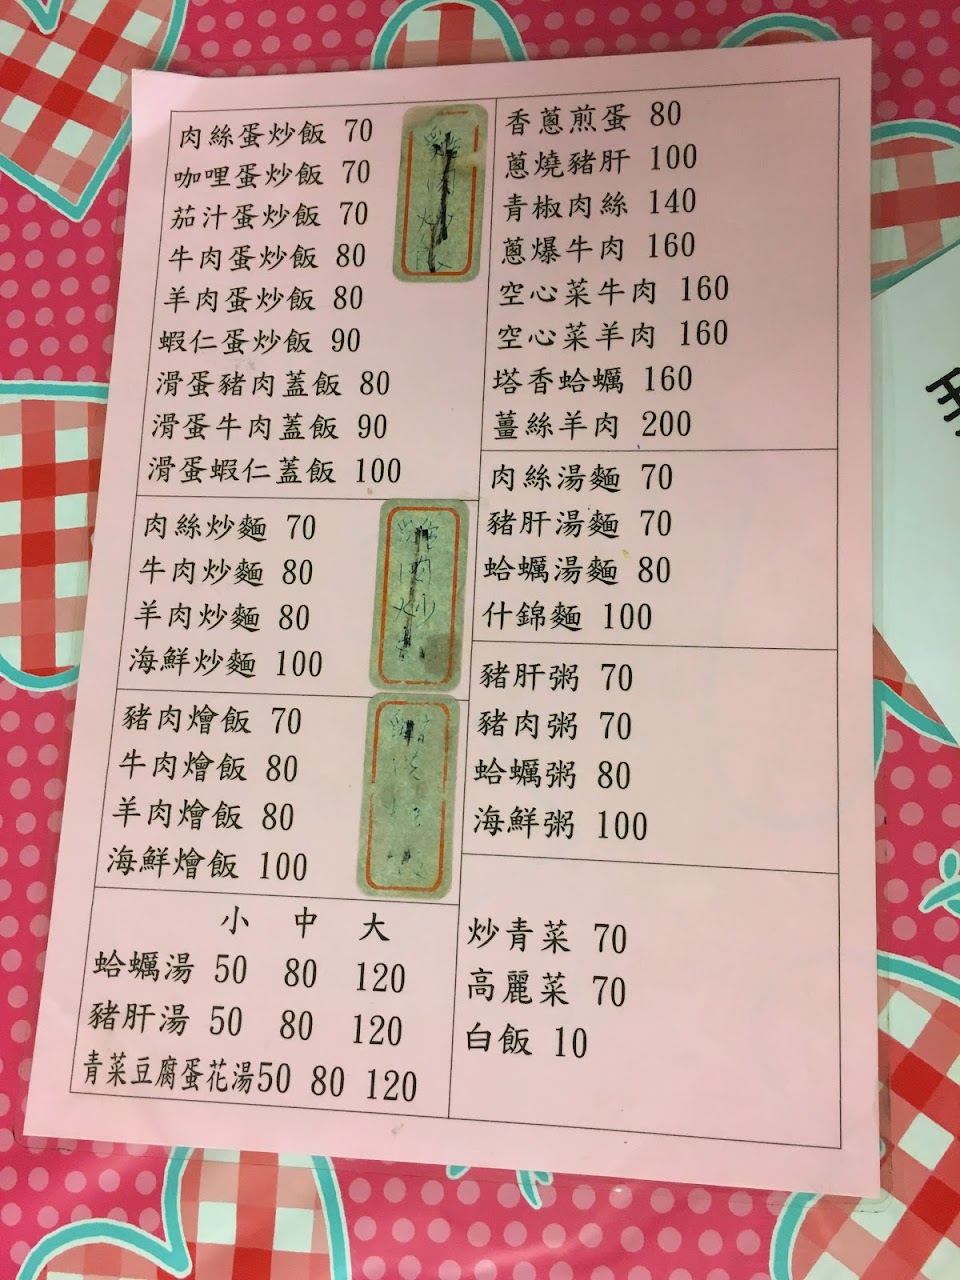 肉絲蛋炒飯 70
咖哩蛋炒飯 70
茄汁蛋炒飯 70
牛肉蛋炒飯 80
羊肉蛋炒飯 80
蝦仁蛋炒飯 90
滑蛋豬肉蓋飯 80
滑蛋牛肉蓋飯 90
滑蛋蝦仁蓋飯 100
肉絲炒麵 70
牛肉炒麵 80
羊肉炒麵 80
海鮮炒麵 100
豬肉燴飯 70
牛肉燴飯 80
羊肉燴飯 80
海鮮燴飯 100
小 中 大
蛤蠣湯 50 80 120
豬肝湯 50 80 120
青菜豆腐蛋花湯50 80 120
香蔥煎蛋 80
蔥燒豬肝 100
青椒肉絲 140
蔥爆牛肉 160
空心菜牛肉 160
空心菜羊肉 160
塔香蛤蠣 160
薑絲羊肉 200
肉絲湯麵 70
豬肝湯麵 70
蛤蠣湯麵 80
什錦麵 100
豬肝粥 70
豬肉粥 70
蛤蠣粥 80
海鮮粥 100
炒青菜 70
高麗菜 70
白飯 10